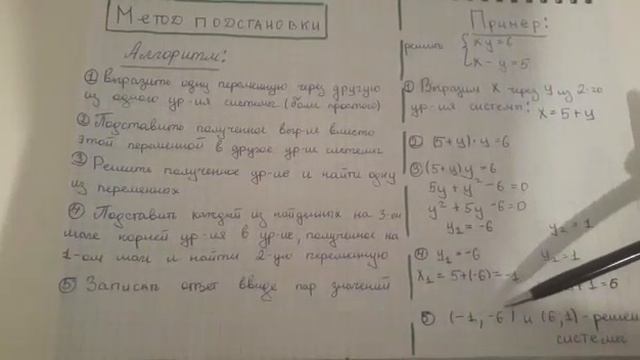 Метод подстановки
Алгоритм:
① Выразить одну переменную через другую
из одного ур-ия системы (более простого)
② Подставить полученное выр-ие вместо
этой переменной в другое ур-ие системы
③ Решить полученное ур-ие и найти одну
из переменных
④ Подставить каждый из найденных на 3-ем
шаге корней ур-ия в ур-ие, полученное на
1-ом шаге и найти 2-ую переменную
⑤ Записать ответ ввиде пар значений
Пример:
решить { xy = 6
x - y = 5
① Выразим x через y из 2-го
ур-ия системы: x = 5 + y
② (5+y)·y = 6
③ (5+y)y = 6
5y + y² - 6 = 0
y² + 5y - 6 = 0
y₁ = -6 y₂ = 1
④ y₁ = -6 y₂ = 1
x₁ = 5+(-6) = -1 +1 = 6
⑤ (-1, -6) и (6, 1) - решен
системы